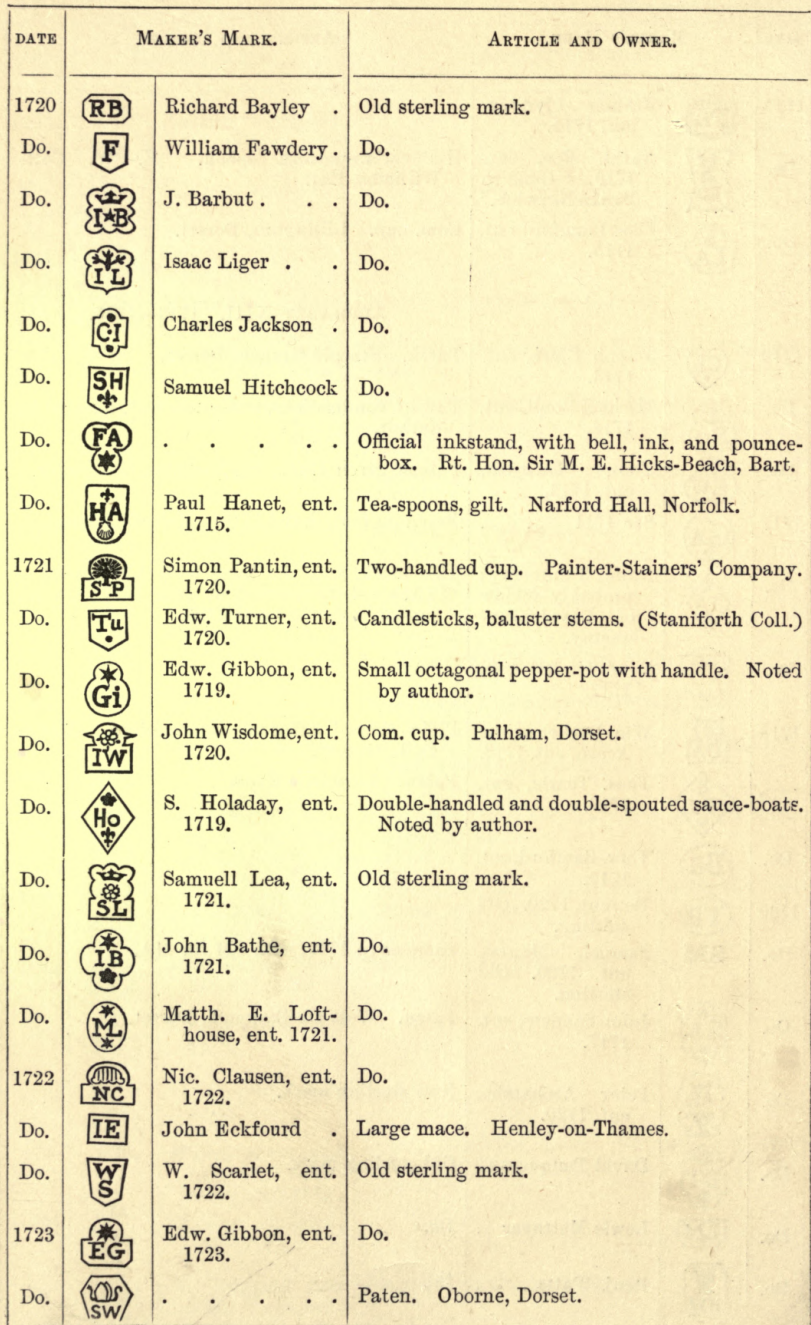 DATE MAKER'S MARK. ARTICLE AND OWNER.
1720 RB Richard Bayley . Old sterling mark.
Do. F William Fawdery . Do.
Do. I★B J. Barbut . . . Do.
Do. IL Isaac Liger . . Do.
Do. CI Charles Jackson . Do.
Do. SH Samuel Hitchcock Do.
Do. FA . . . . . Official inkstand, with bell, ink, and pounce-
box. Rt. Hon. Sir M. E. Hicks-Beach, Bart.
Do. HA Paul Hanet, ent. Tea-spoons, gilt. Narford Hall, Norfolk.
1715.
1721 SP Simon Pantin, ent. Two-handled cup. Painter-Stainers' Company.
1720.
Do. Tu Edw. Turner, ent. Candlesticks, baluster stems. (Staniforth Coll.)
1720.
Do. Gi Edw. Gibbon, ent. Small octagonal pepper-pot with handle. Noted
1719. by author.
Do. IW John Wisdome, ent. Com. cup. Pulham, Dorset.
1720.
Do. Ho S. Holaday, ent. Double-handled and double-spouted sauce-boats.
1719. Noted by author.
Do. SL Samuell Lea, ent. Old sterling mark.
1721.
Do. IB John Bathe, ent. Do.
1721.
Do. M Matth. E. Loft- Do.
house, ent. 1721.
1722 NC Nic. Clausen, ent. Do.
1722.
Do. IE John Eckfourd . Large mace. Henley-on-Thames.
Do. WS W. Scarlet, ent. Old sterling mark.
1722.
1723 EG Edw. Gibbon, ent. Do.
1723.
Do. SW . . . . . Paten. Oborne, Dorset.